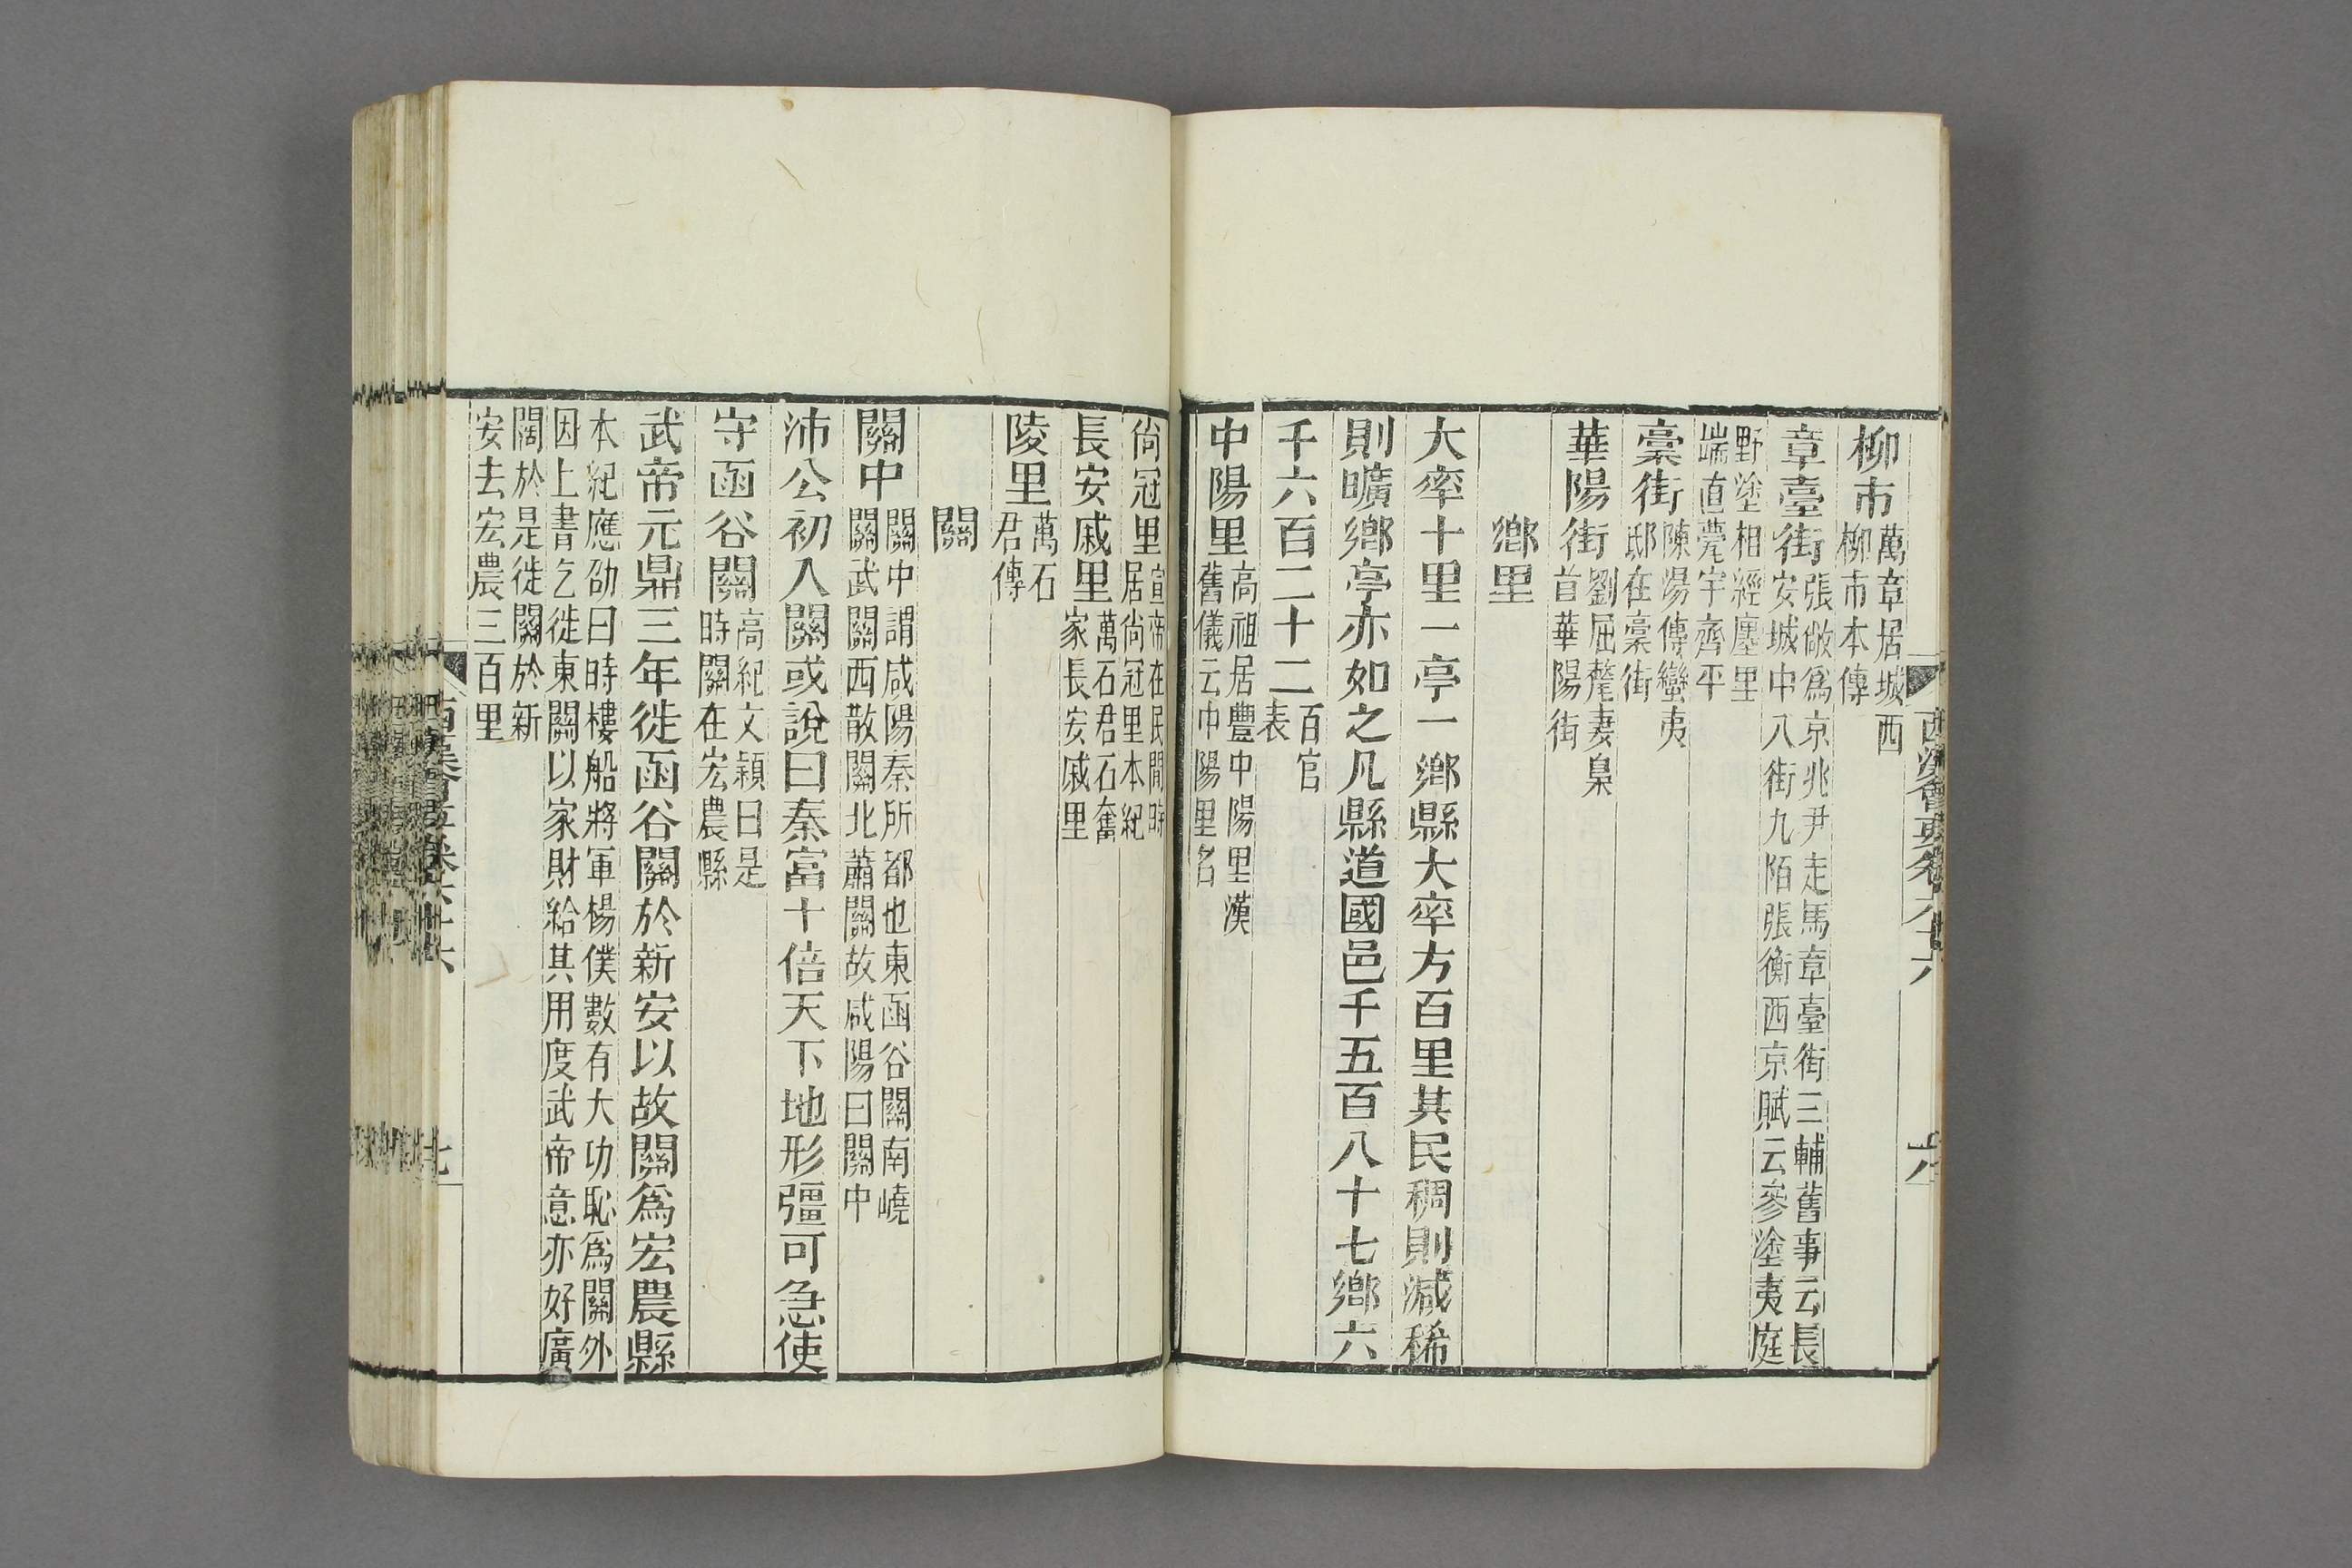 柳市萬章居城西柳市本傳
章臺街張敞爲京兆尹走馬章臺街三輔舊事云長安城中八街九陌張衡西京賦云參塗夷庭
野塗相經廛里端直甍宇齊平
槀街陳湯傳蠻夷邸在槀街
華陽街劉屈氂妻梟首華陽街
鄉里
大率十里一亭一鄉縣大率方百里其民稠則減稀
則曠鄉亭亦如之凡縣道國邑千五百八十七鄉六
千六百二十二百官表
中陽里高祖居豐中陽里漢舊儀云中陽里名
西漢會要卷六十六
六
尙冠里宣帝在民間時居尙冠里本紀
長安戚里萬石君石奮家長安戚里
陵里萬石君傳
關
關中關中謂咸陽秦所都也東函谷關南嶢關武關西散關北蕭關故咸陽曰關中
沛公初入關或說曰秦富十倍天下地形彊可急使
守函谷關高紀文穎曰是時關在宏農縣
武帝元鼎三年徙函谷關於新安以故關爲宏農縣
本紀應劭曰時樓船將軍楊僕數有大功恥爲關外因上書乞徙東關以家財給其用度武帝意亦好廣
闊於是徙關於新安去宏農三百里
七